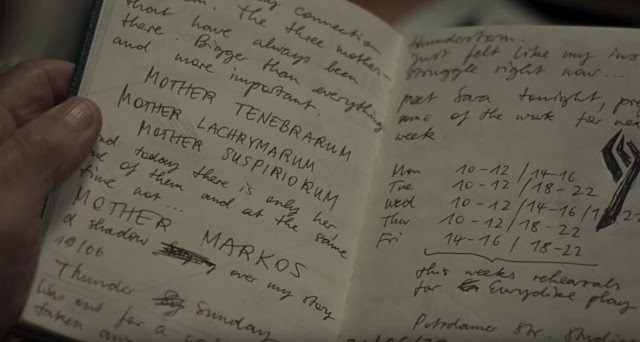 my connection
. The three mother-
that have always been
there. Bigger than everything
and more important.
MOTHER TENEBRARUM
MOTHER LACHRYMARUM
MOTHER SUSPIRIORUM
and today there is only her
one of them and at the same
time not...
MOTHER MARKOS
a shadow over my story
19/06
Thunder Sunday
Was out for a
taken
thunderstorm.
just felt like my
struggle right now...
meet Sara tonight,
some of the work for
week.
Mon 10-12/14-16
Tue 10-12/18-22
Wed 10-12/14-16/
Thur 10-12/18-22
Fri 14-16/18-22
this weeks rehearsals
for Eurydike play
Potsdamer Str.